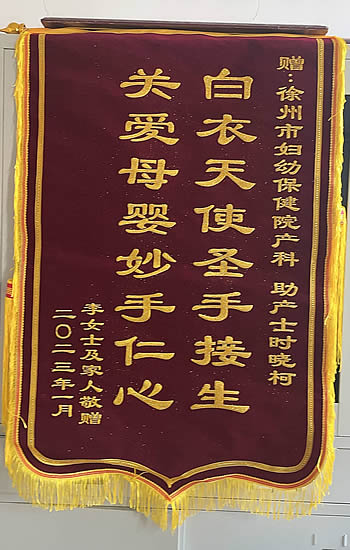 赠：徐州市妇幼保健院产科 助产士时晓柯
白衣天使圣手接生
关爱母婴妙手仁心
李女士及家人敬赠
二〇二三年一月